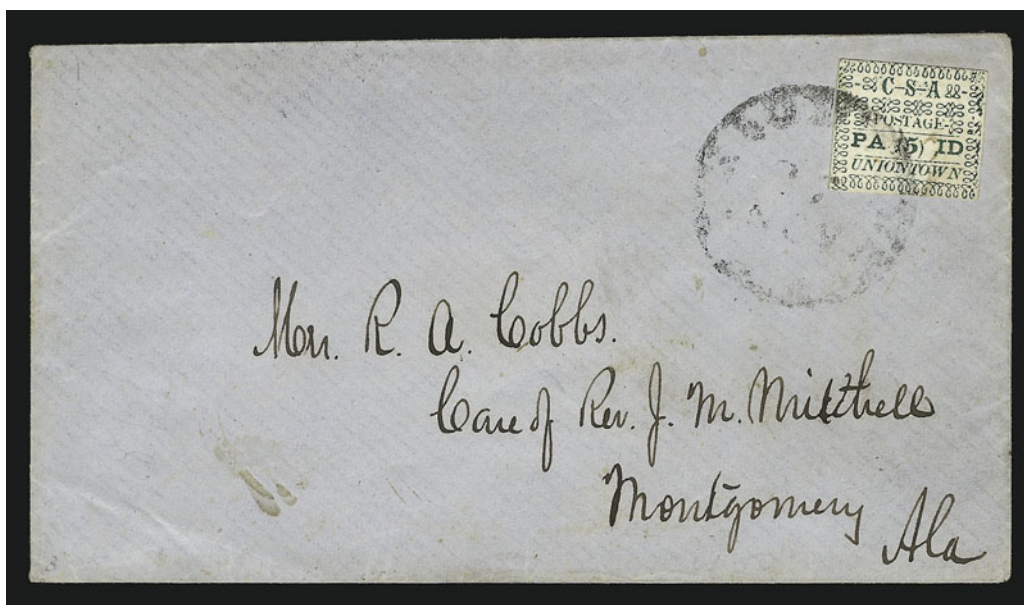 C-S-A
POSTAGE
PA (5) ID
UNIONTOWN
Mrs. R. A. Cobbs.
Care of Rev. J. M. Mitchell
Montgomery
Ala